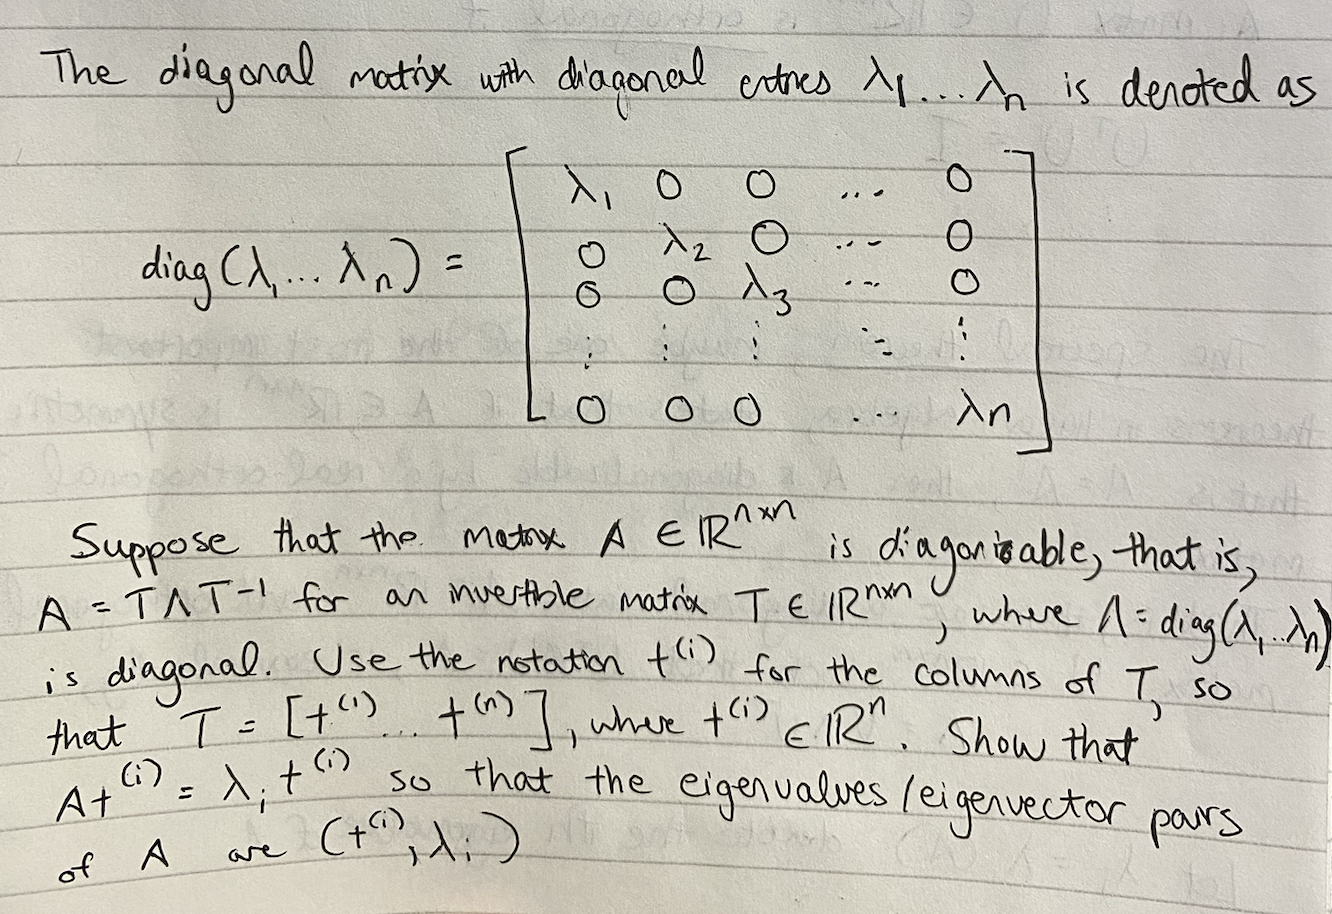 The diagonal matrix with diagonal entries λ1...λn is denoted as
diag(λ1...λn) =
λ1 0 0 ... 0
0 λ2 0 ... 0
0 0 λ3 ... 0
⋮ ⋮ ⋮ ⋱ ⋮
0 0 0 .. λn
Suppose that the matrix A ∈ ℝ^{n×n} is diagonizable, that is,
A = TΛT^{-1} for an invertible matrix T ∈ ℝ^{n×n}, where Λ = diag(λ1..λn)
is diagonal. Use the notation t^{(i)} for the columns of T, so
that T = [t^{(1)}... t^{(n)}], where t^{(i)} ∈ ℝ^n. Show that
At^{(i)} = λi t^{(i)} so that the eigenvalues/eigenvector pairs
of A are (t^{(i)}, λi)